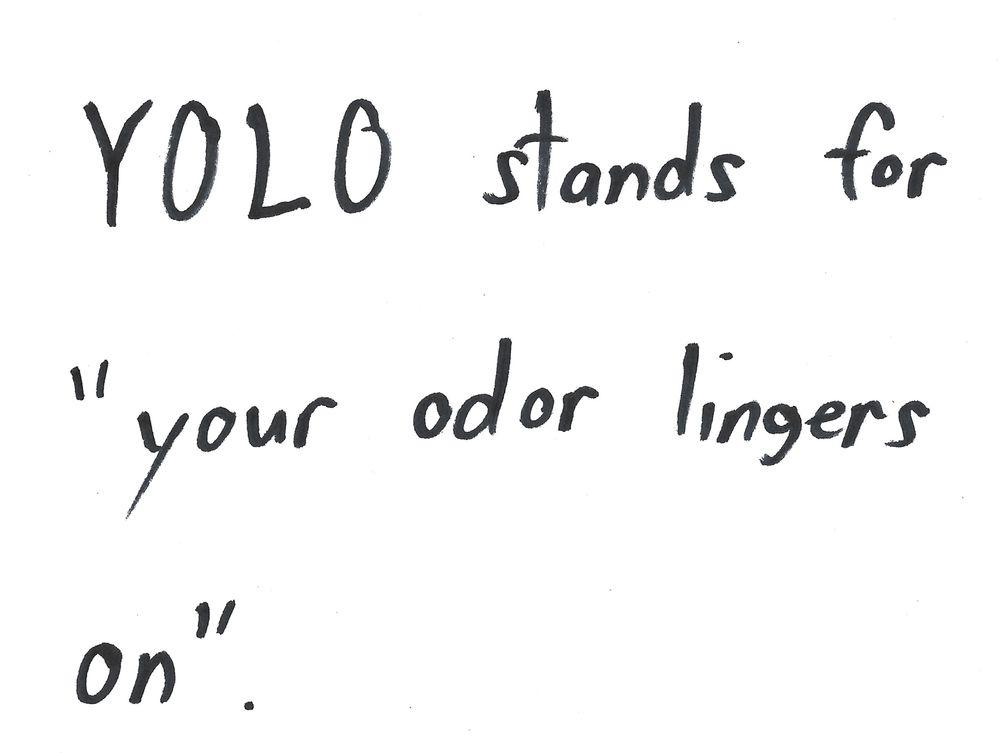 YOLO stands for
"your odor lingers
on".